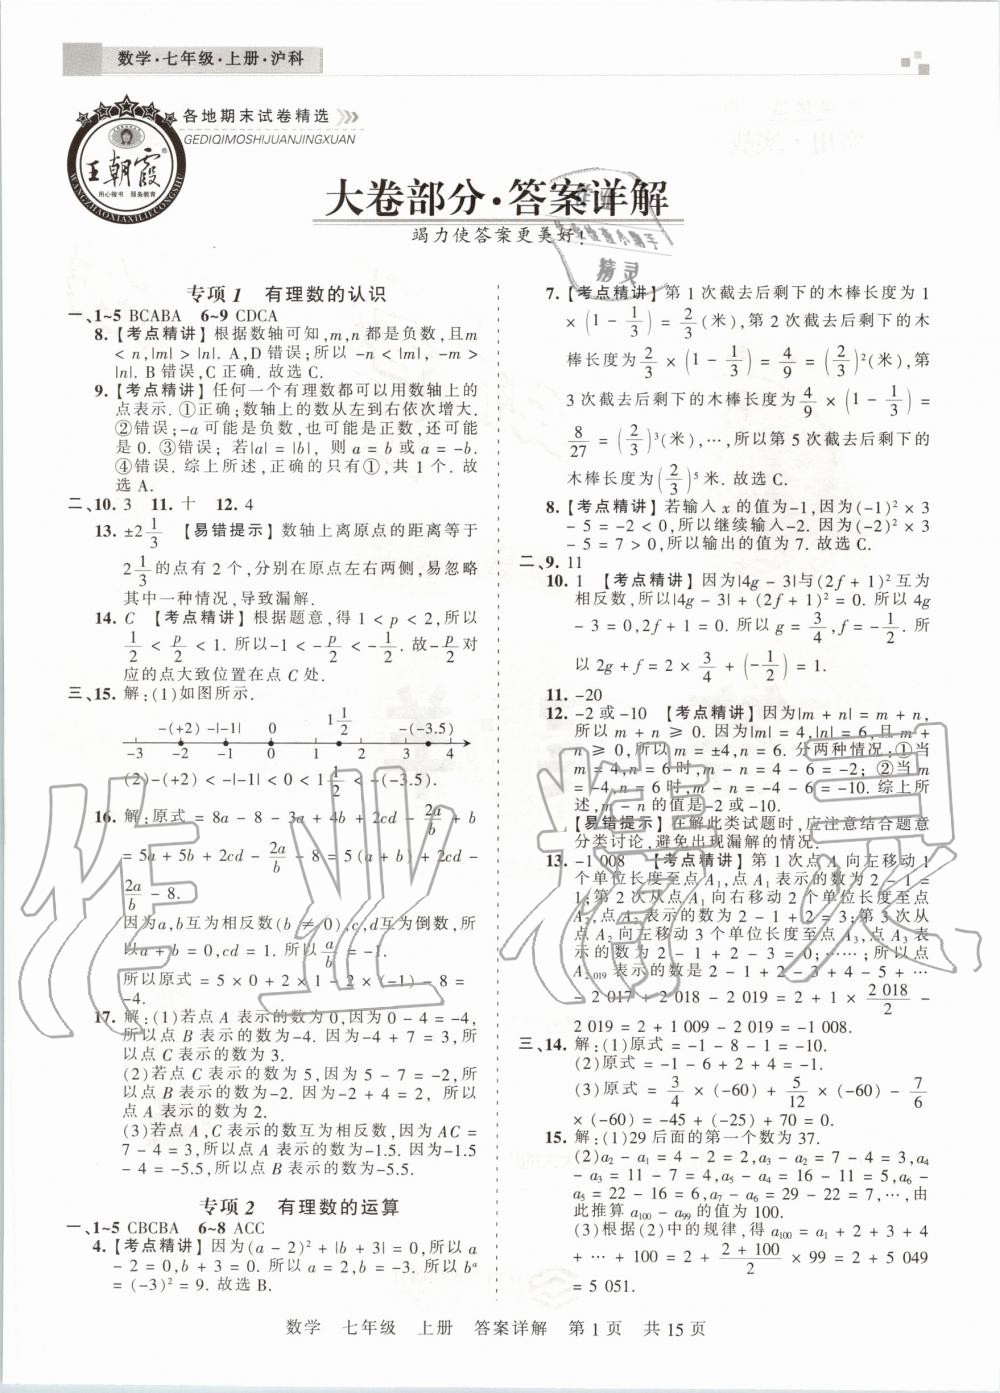 数学·七年级·上册·沪科
各地期末试卷精选
GEDIQIMOSHIJUANJINGXUAN
王朝霞
用心做书 服务教育
WANGZHAOXIAXILIECONGSHU
大卷部分·答案详解
竭力使答案更美好!
专项1 有理数的认识
一、1~5 BCABA 6~9 CDCA
8.【考点精讲】根据数轴可知,m,n都是负数,且m
< n,|m| > |n|. A,D错误;所以 -n < |m|, -m >
|n|. B错误,C正确. 故选C.
9.【考点精讲】任何一个有理数都可以用数轴上的
点表示. ①正确;数轴上的数从左到右依次增大.
②错误;-a可能是负数,也可能是正数,还可能
是0. ③错误;若|a| = |b|, 则 a = b 或 a = -b.
④错误. 综上所述,正确的只有①,共1个. 故
选A.
二、10. 3 11. 十 12. 4
13. ±2 1/3 【易错提示】数轴上离原点的距离等于
2 1/3 的点有2个,分别在原点左右两侧,易忽略
其中一种情况,导致漏解.
14. C 【考点精讲】根据题意,得1 < p < 2,所以
1/2 < p/2 < 1. 所以-1 < -p/2 < -1/2. 故-p/2对
应的点大致位置在点C处.
三、15. 解:(1)如图所示.
-(+2) -|-1| 0 1 1/2 -(-3.5)
-3 -2 -1 0 1 2 3 4
(2)-(+2) < -|-1| < 0 < 1 1/2 < -(-3.5).
16. 解:原式 = 8a - 8 - 3a + 4b + 2cd - 2a/b + b
= 5a + 5b + 2cd - 2a/b - 8 = 5(a + b) + 2cd -
2a/b - 8.
因为a,b互为相反数(b ≠ 0),c,d互为倒数,所
以a + b = 0,cd = 1. 所以a/b = -1.
所以原式 = 5 × 0 + 2 × 1 - 2 × (-1) - 8 =
-4.
17. 解:(1)若点A表示的数为0,因为0 - 4 = -4,
所以点B表示的数为-4. 因为-4 + 7 = 3,所
以点C表示的数为3.
(2)若点C表示的数为5,因为5 - 7 = -2,所
以点B表示的数为-2. 因为-2 + 4 = 2, 所以
点A表示的数为2.
(3)若点A,C表示的数互为相反数,因为AC =
7 - 4 = 3,所以点A表示的数为-1.5. 因为-1.5
- 4 = -5.5,所以点B表示的数为-5.5.
专项2 有理数的运算
一、1~5 CBCBA 6~8 ACC
4.【考点精讲】因为(a - 2)² + |b + 3| = 0,所以a
- 2 = 0,b + 3 = 0. 所以a = 2,b = -3. 所以bᵃ
= (-3)² = 9. 故选B.
7.【考点精讲】第1次截去后剩下的木棒长度为1
× (1 - 1/3) = 2/3(米),第2次截去后剩下的木
棒长度为2/3 × (1 - 1/3) = 4/9 = (2/3)²(米),第
3次截去后剩下的木棒长度为4/9 × (1 - 1/3) =
8/27 = (2/3)³(米),…,所以第5次截去后剩下的
木棒长度为(2/3)⁵米. 故选C.
8.【考点精讲】若输入x的值为-1,因为(-1)² × 3
- 5 = -2 < 0,所以继续输入-2. 因为(-2)² × 3
- 5 = 7 > 0,所以输出的值为7. 故选C.
二、9. 11
10. 1 【考点精讲】因为|4g - 3|与(2f + 1)²互为
相反数,所以|4g - 3| + (2f + 1)² = 0. 所以4g
- 3 = 0,2f + 1 = 0. 所以g = 3/4,f = -1/2. 所
以2g + f = 2 × 3/4 + (-1/2) = 1.
11. -20
12. -2或-10 【考点精讲】因为|m + n| = m + n,
所以m + n ≥ 0. 因为|m| = 4,|n| = 6,且m +
n ≥ 0,所以m = ±4,n = 6. 分两种情况:①当
m = 4,n = 6时,m - n = 4 - 6 = -2; ②当m
= -4,n = 6时,m - n = -4 - 6 = -10. 综上所
述,m - n的值是-2或-10.
【易错提示】在解此类试题时,应注意结合题意
分类讨论,避免出现漏解的情况.
13. -1 008 【考点精讲】第1次点A向左移动1
个单位长度至点A₁,点A₁表示的数为2 - 1 =
1;第2次从点A₁向右移动2个单位长度至点
A₂,点A₂表示的数为2 - 1 + 2 = 3;第3次从
点A₂向左移动3个单位长度至点A₃,点A₃表
示的数为2 - 1 + 2 - 3 = 0;……;所以点
A₂ ₀₁₉表示的数是2 - 1 + 2 - 3 + 4 - 5 + …
- 2 017 + 2 018 - 2 019 = 2 + 1 × 2 018/2 -
2 019 = 2 + 1 009 - 2 019 = -1 008.
三、14. 解:(1)原式 = -1 - 8 - 1 = -10.
(2)原式 = -1 - 6 + 2 + 4 = -1.
(3)原式 = 3/4 × (-60) + 5/12 × (-60) - 7/6
× (-60) = -45 + (-25) + 70 = 0.
15. 解:(1)29后面的第一个数为37.
(2)a₂ - a₁ = 4 - 2 = 2, a₃ - a₂ = 7 - 4 = 3,a₄
- a₃ = 11 - 7 = 4, a₅ - a₄ = 16 - 11 = 5,a₆ -
a₅ = 22 - 16 = 6,a₇ - a₆ = 29 - 22 = 7,…,由
此推算a₁₀₀ - a₉₉的值为100.
(3)根据(2)中的规律,得a₁₀₀ = a₁ + 2 + 3 + 4
+ … + 100 = 2 + (2 + 100)/2 × 99 = 2 + 5 049
= 5 051.
作业精灵
数学 七年级 上册 答案详解 第1页 共15页